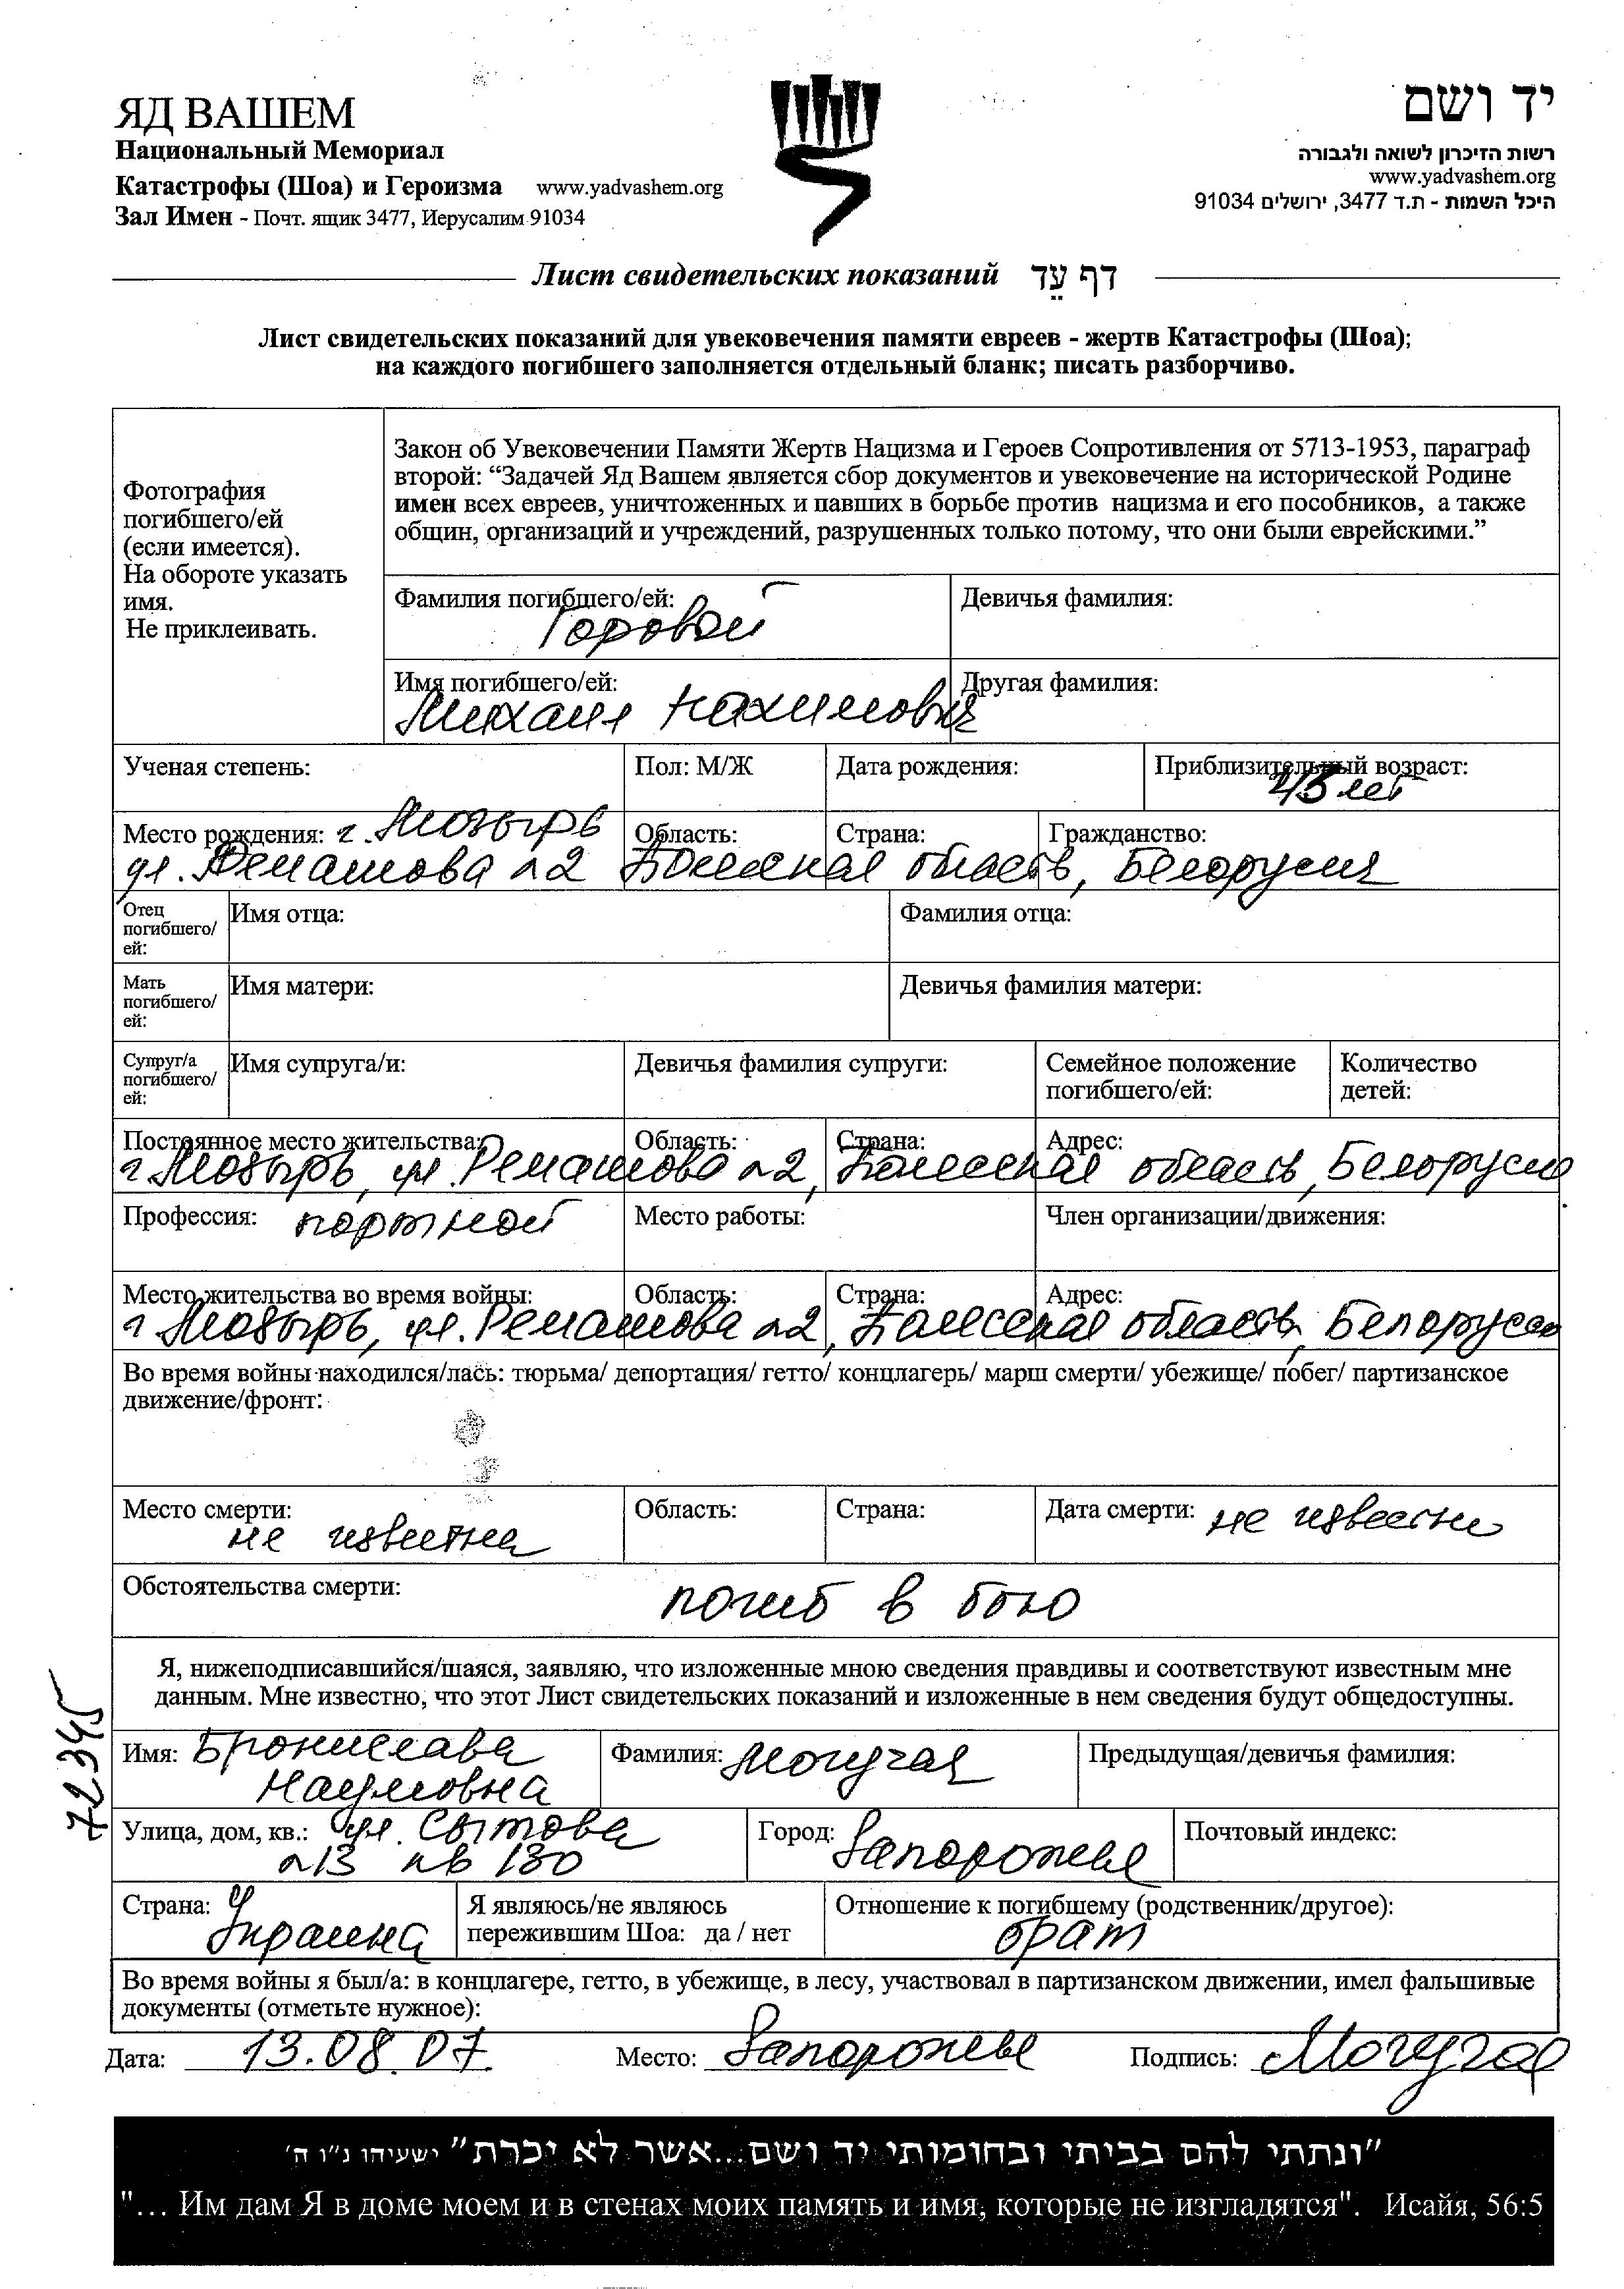 ЯД ВАШЕМ
Национальный Мемориал
Катастрофы (Шоа) и Героизма www.yadvashem.org
Зал Имен - Почт. ящик 3477, Иерусалим 91034
יד ושם
רשות הזיכרון לשואה ולגבורה
www.yadvashem.org
היכל השמות - ת.ד 3477, ירושלים 91034
Лист свидетельских показаний דף עֵד
Лист свидетельских показаний для увековечения памяти евреев - жертв Катастрофы (Шоа);
на каждого погибшего заполняется отдельный бланк; писать разборчиво.
Фотография
погибшего/ей
(если имеется).
На обороте указать
имя.
Не приклеивать.
Закон об Увековечении Памяти Жертв Нацизма и Героев Сопротивления от 5713-1953, параграф
второй: “Задачей Яд Вашем является сбор документов и увековечение на исторической Родине
имен всех евреев, уничтоженных и павших в борьбе против нацизма и его пособников, а также
общин, организаций и учреждений, разрушенных только потому, что они были еврейскими.”
Фамилия погибшего/ей: Девичья фамилия:
Горовой
Имя погибшего/ей: Другая фамилия:
Михаил Нахимович
Ученая степень: Пол: М/Ж Дата рождения: Приблизительный возраст:
43 лет
Место рождения: г. Мозырь Область: Страна: Гражданство:
ул. Ремашова 2 Полесская область, Белорусия
Отец
погибшего/
ей:
Имя отца: Фамилия отца:
Мать
погибшего/
ей:
Имя матери: Девичья фамилия матери:
Супруг/а
погибшего/
ей:
Имя супруга/и: Девичья фамилия супруги: Семейное положение
погибшего/ей:
Количество
детей:
Постоянное место жительства: Область: Страна: Адрес:
г Мозырь, ул. Ремашова 2, Полесская область, Белорусия
Профессия: портной Место работы: Член организации/движения:
Место жительства во время войны: Область: Страна: Адрес:
г Мозырь, ул. Ремашова 2, Полесская область, Белорусия
Во время войны находился/лась: тюрьма/ депортация/ гетто/ концлагерь/ марш смерти/ убежище/ побег/ партизанское
движение/фронт:
Место смерти: Область: Страна: Дата смерти: не известна
не известна
Обстоятельства смерти: погиб в бою
Я, нижеподписавшийся/шаяся, заявляю, что изложенные мною сведения правдивы и соответствуют известным мне
данным. Мне известно, что этот Лист свидетельских показаний и изложенные в нем сведения будут общедоступны.
72345
Имя: Бронислава Фамилия: Могучая Предыдущая/девичья фамилия:
Наумовна
Улица, дом, кв.: ул. Сытова Город: Запорожье Почтовый индекс:
13 кв 130
Страна: Украина
Я являюсь/не являюсь
пережившим Шоа: да / нет
Отношение к погибшему (родственник/другое):
брат
Во время войны я был/а: в концлагере, гетто, в убежище, в лесу, участвовал в партизанском движении, имел фальшивые
документы (отметьте нужное):
Дата: 13.08.07 Место: Запорожье Подпись: Могучая
"ונתתי להם בביתי ובחומותי יד ושם...אשר לא יכרת" ישעיהו נ"ו ה'
"... Им дам Я в доме моем и в стенах моих память и имя, которые не изгладятся". Исайя, 56:5